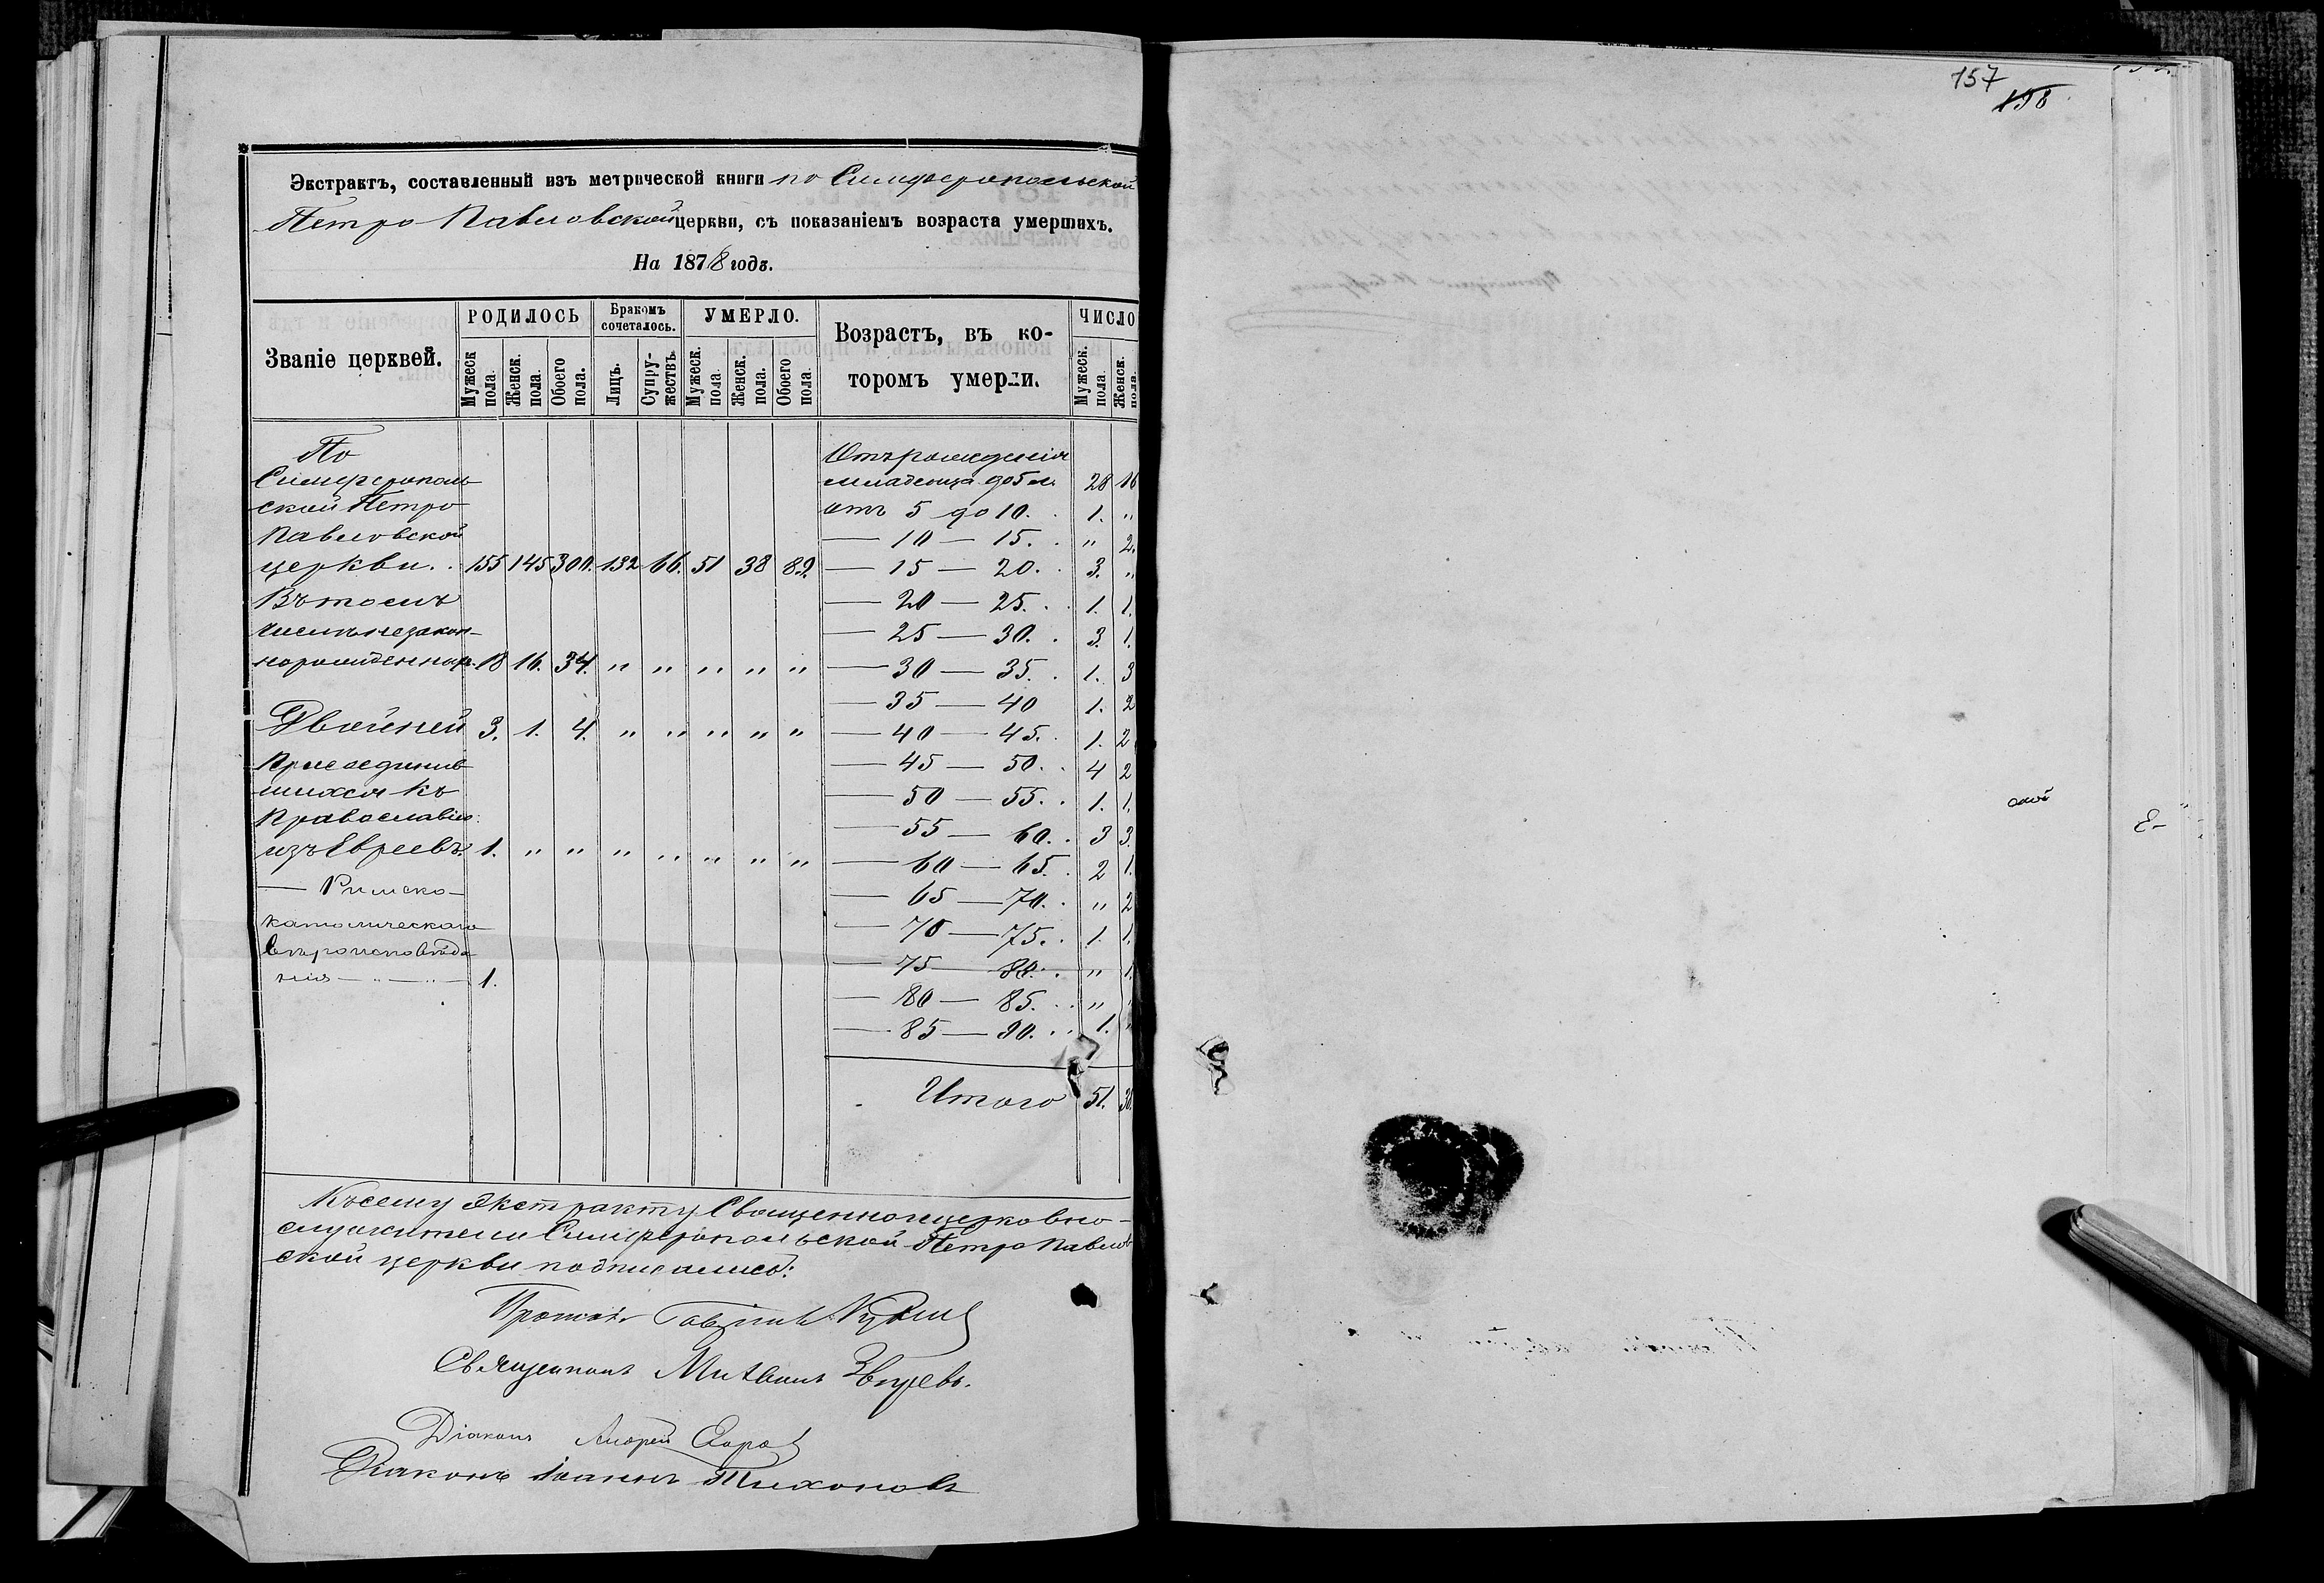 Экстрактъ, составленный изъ метрической книги по Симферопольской
Петро Павловской церкви, съ показаніемъ возраста умершихъ.
На 1878 годъ.
Званіе церквей. РОДИЛОСЬ Бракомъ сочеталось. УМЕРЛО. Возрастъ, въ ко-торомъ умерли. ЧИСЛО
Мужеск. пола. Женск. пола. Обоего пола. Лицъ. Супру-жествъ. Мужеск. пола. Женск. пола. Обоего пола. Мужеск. пола. Женск. пола.
По
Симферополь
ской Петро
Павловской
церкви. 155 145 300. 132 66. 51 38 89.
Въ томъ
числѣ незакон-
норожденных 18 16. 34. " " " " "
Двойней 3. 1. 4. " " " " "
Присоединив
шихся къ
Православію
изъ Евреевъ. 1. " " " " " " "
— Римско-
католическаго
вѣроисповѣда
нія — " — " — 1.
Отъ рожденія
младенца до 5 л. 28 16
отъ 5 до 10. 1. "
— 10 — 15. " 2.
— 15 — 20. 3. "
— 20 — 25. 1. 1.
— 25 — 30. 3. 1.
— 30 — 35. 1. 3
— 35 — 40 1. 2
— 40 — 45. 1. 2
— 45 — 50. 4 2
— 50 — 55. 1. 1.
— 55 — 60. 3 3.
— 60 — 65. 2 1.
— 65 — 70. " 2
— 70 — 75. 1. 1.
— 75 — 80. " 1.
— 80 — 85. " "
— 85 — 90. 1. "
Итого 51. 38.
Къ сему экстракту Священноцерковно-
служители Симферопольской Петро Павлов
ской церкви подписались:
Священникъ Михаилъ Звѣревъ.
Діаконъ Андрей
Діаконъ Іоаннъ Тихоновъ
157
158